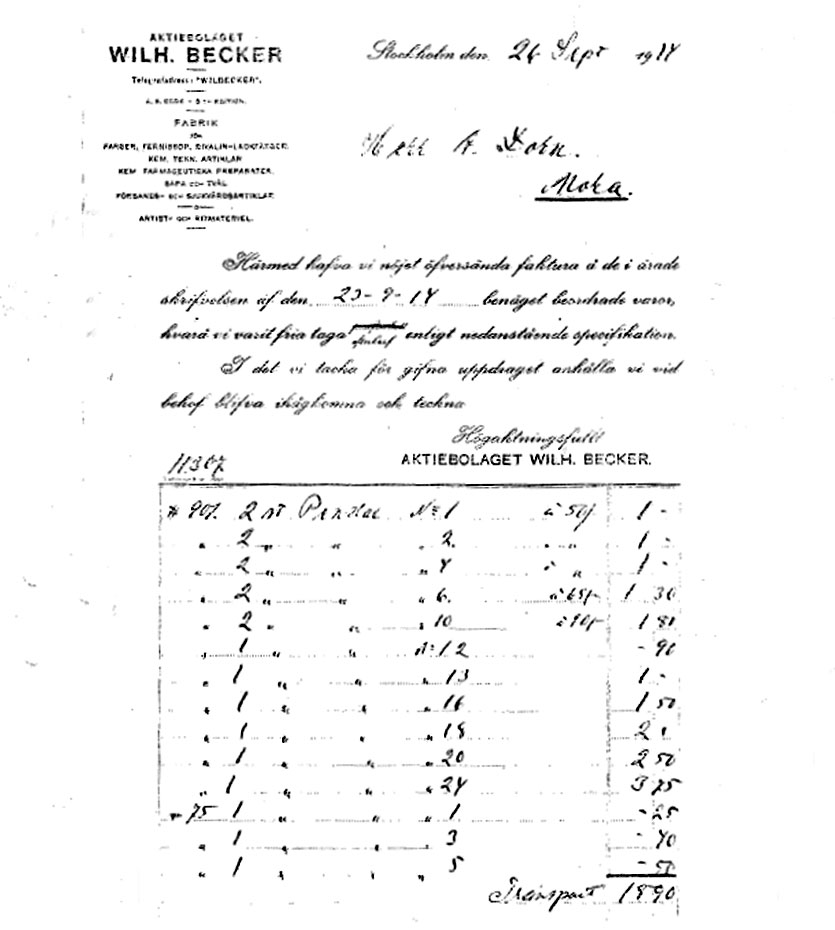 AKTIEBOLAGET
WILH. BECKER
Telegrafadress: "WILBECKER".
A. B. CODE - 5TH EDITION.
FABRIK
FÖR
FÄRGER, FERNISSOR, SIVALIN-LACKFÄRGER.
KEM. TEKN. ARTIKLAR
KEM. FARMACEUTISKA PREPARATER.
SÅPA OCH TVÅL
FÖRBANDS- OCH SJUKVÅRDSARTIKLAR.
ARTIST- OCH RITMATERIEL.
Stockholm den 26 Sept 1914
Herr A. Zorn.
Mora.
Härmed hafva vi nöjet öfversända faktura å de i ärade
skrifvelsen af den 23-9-14 benäget beordrade varor,
hvarå vi varit fria taga enligt nedanstående specifikation.
I det vi tacka för gifna uppdraget anhålla vi vid
behof blifva ihågkomna och teckna
Högaktningsfullt
AKTIEBOLAGET WILH. BECKER.
11307
# 901. 2 st Penslar No 1 à 50/- 1 -
" 2 " " " 2. " " 1 -
" 2 " " " 4 " " 1 -
" 2 " " " 6. à 65/- 1 30
" 2 " " " 10 à 90/- 1 80
" 1 " " No 12 - 90
" 1 " " " 13 1 -
" 1 " " " 16 1 50
" 1 " " " 18 2 -
" 1 " " " 20 2 50
" 1 " " " 24 3 75
" 75 1 " " " 1 - 25
" 1 " " " 3 - 40
" 1 " " " 5 - 50
Transport 18 90